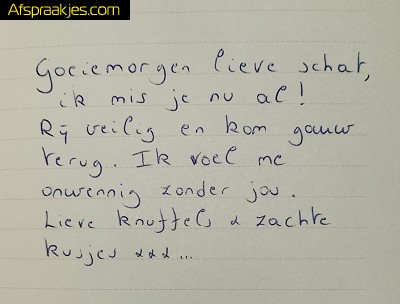 Afspraakjes.com
Goeiemorgen lieve schat,
ik mis je nu al!
Rij veilig en kom gauw
terug. Ik voel me
onwennig zonder jou.
Lieve knuffels & zachte
kusjes xxx...